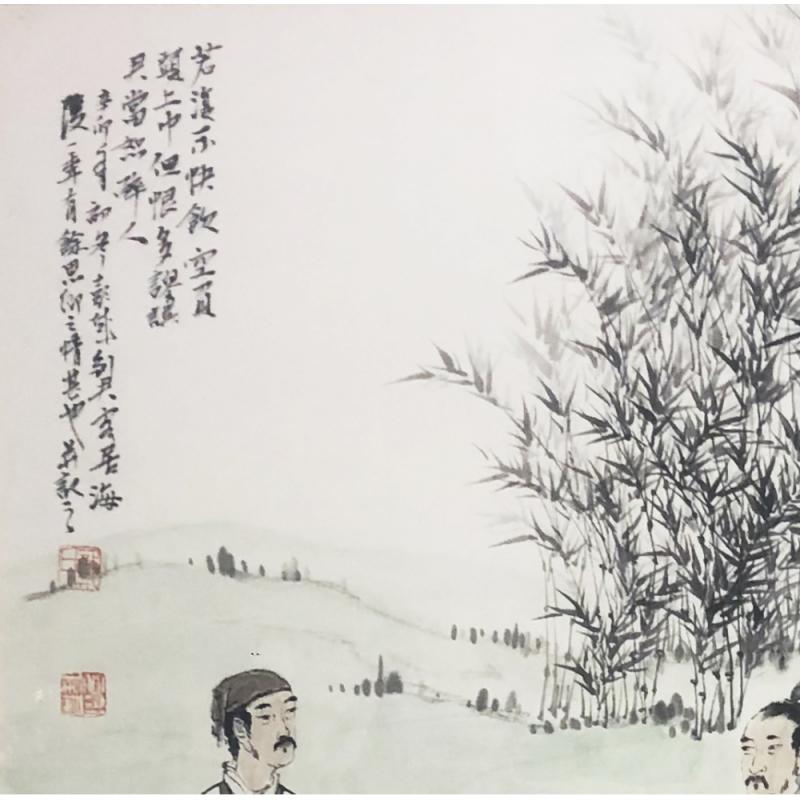 若復不快飲空負
頭上巾但恨多謬誤
君當恕醉人
辛卯年初冬客居海
陵一年有餘思鄉之情甚也並記之